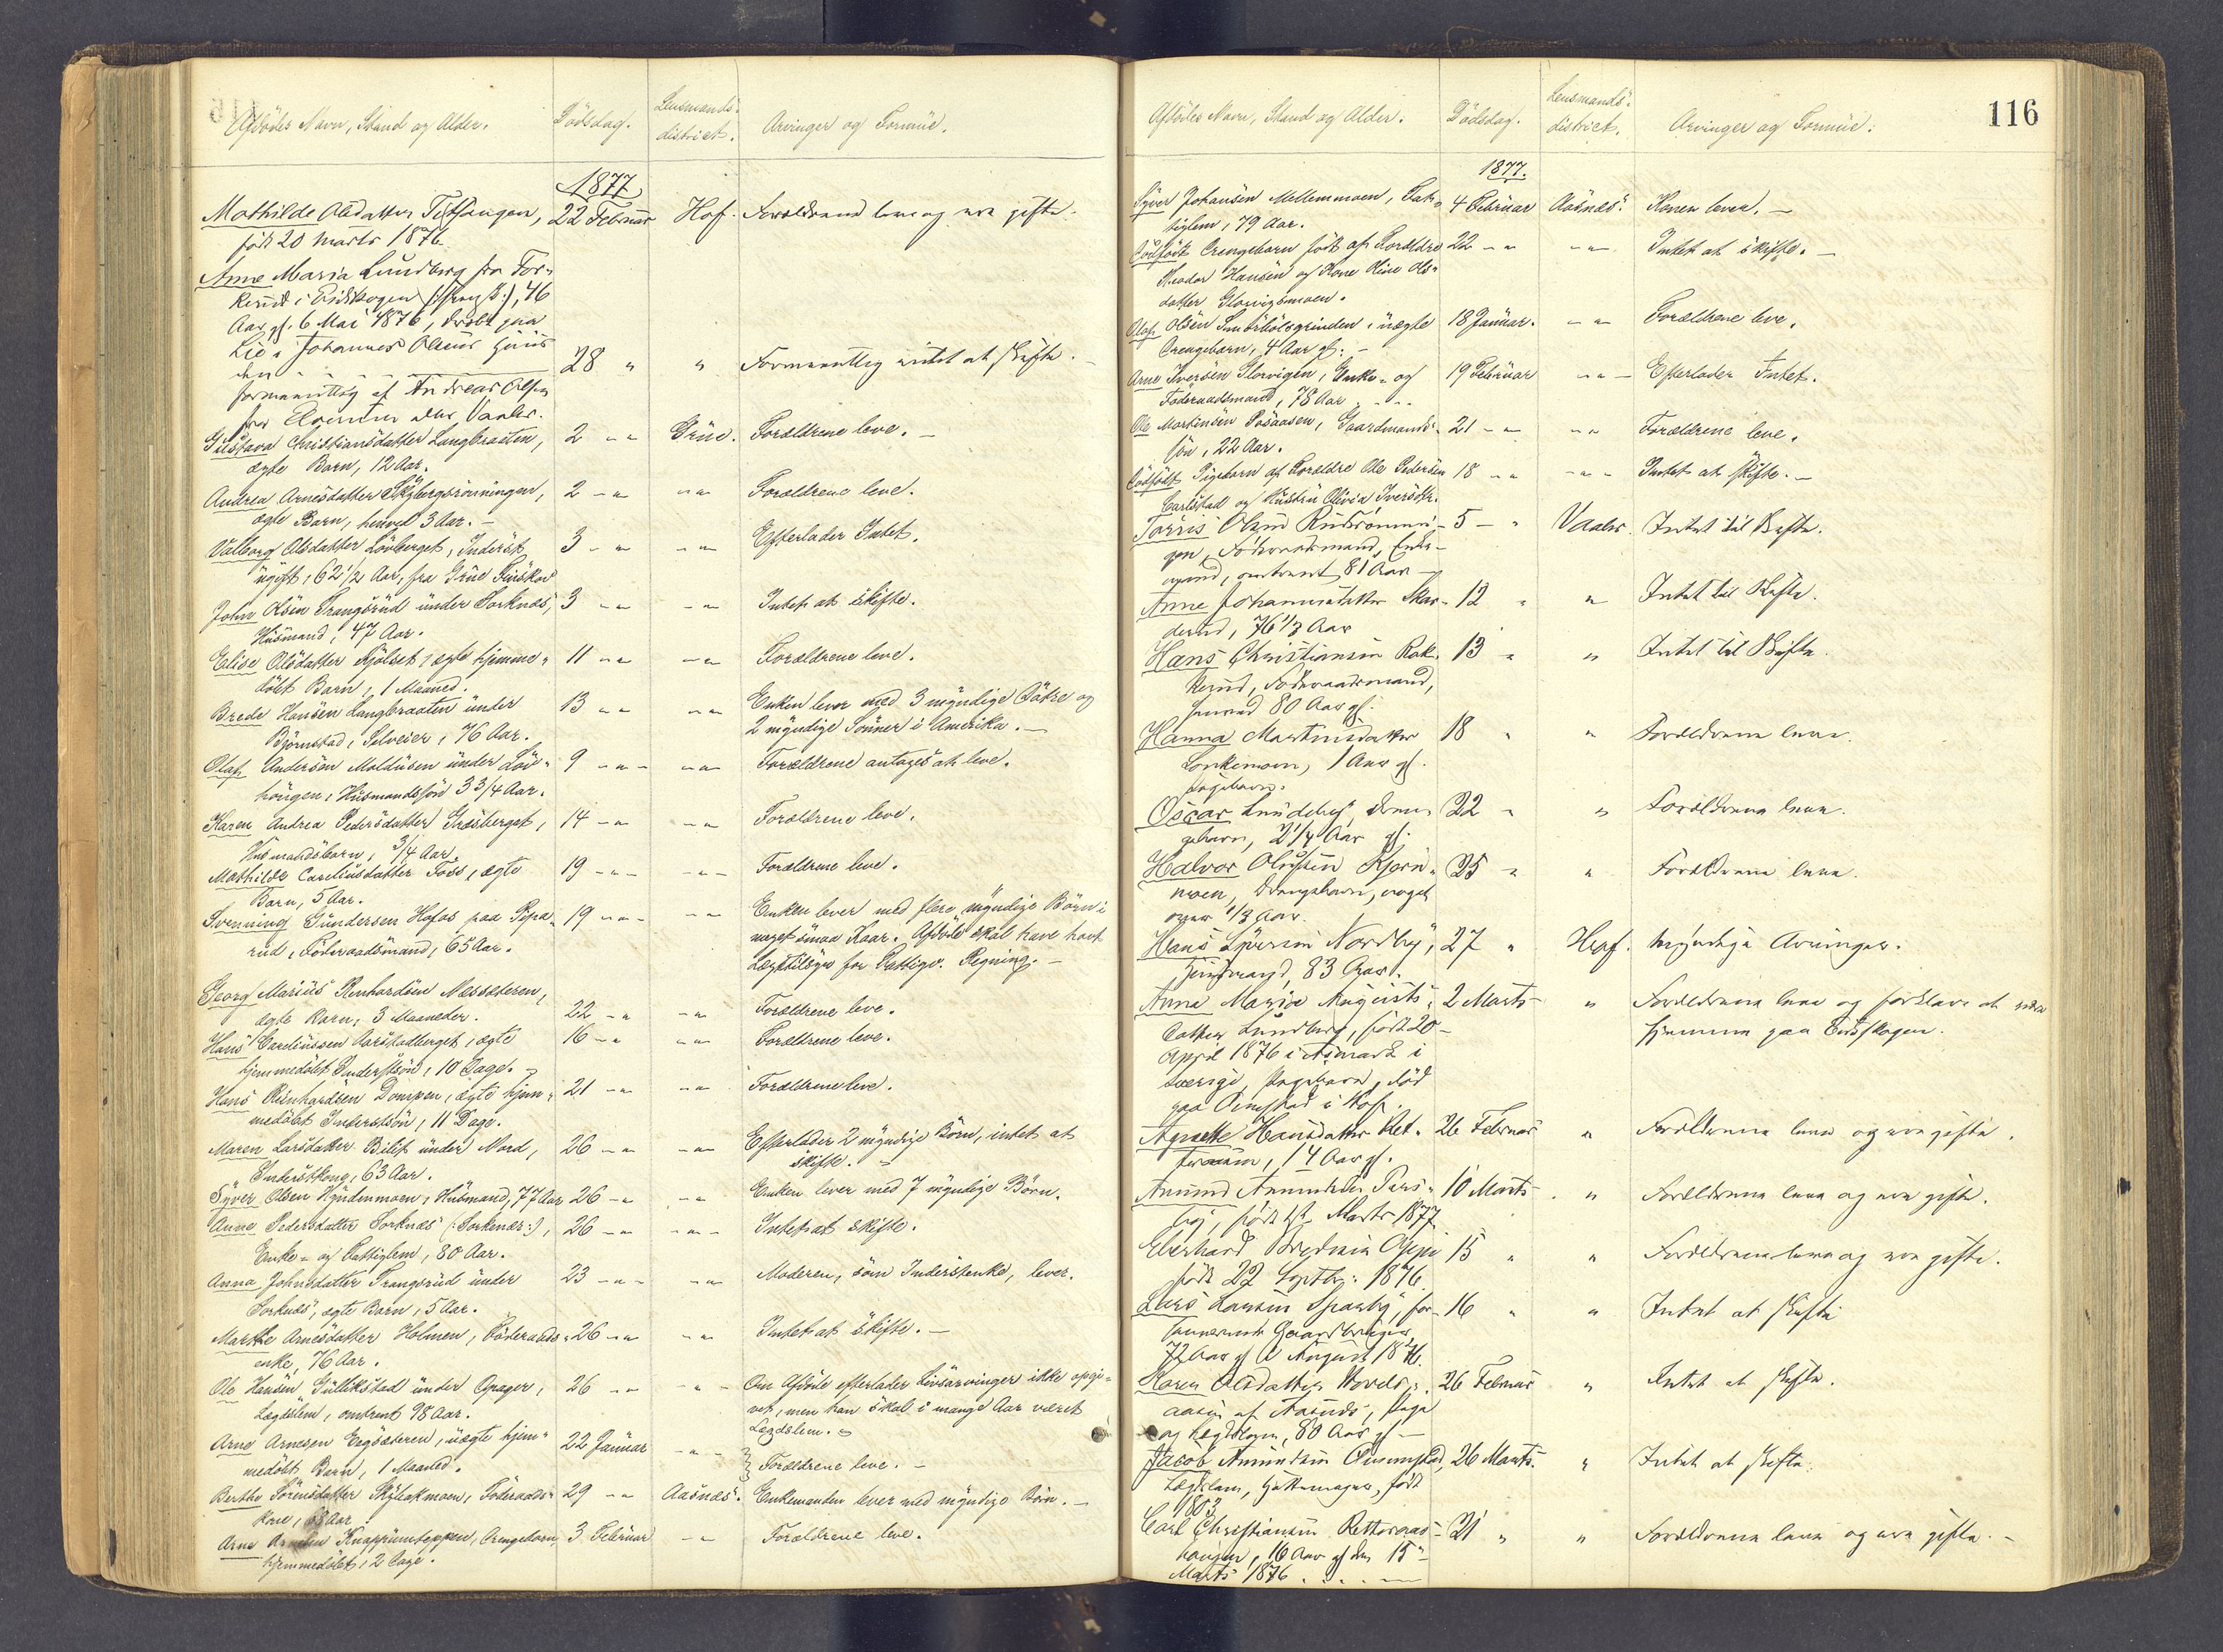 Afdödes Navn, Stand og Alder.
Dödsdag.
Lensmands-
district.
Arvinger og Formue.
1877
Mathilde Olsdatter 22 Februar Hof. Forældrene leve og ere gifte.
født 20 Marts 1876
Anne Maria Lundberg fra
i Eidskogen 46
Aar gl. 6 Mai 1876, dræbt paa
Lie i Johannes Olsens
28 " " Formeentlig intet at skifte.
formeentlig af Andreas Olsen
fra Elverum eller Vaaler.
Gustava Christiansdatter Langbraaten, 2 -"- Grue. Forældrene leve. -
ægte Barn, 12 Aar.
Andrea Arnesdatter 2 -"- -"- Forældrene leve.
ægte Barn, henved 3 Aar. -
Valborg Olsdatter Lövberget, Inderst, 3 -"- -"- Efterlader Intet.
ugift, 62 1/2 Aar, fra Grue Finskov
John Olsen Trangsrud under Sorknæs, 3 -"- -"- Intet at skifte.
Husmand, 47 Aar.
Elise Olsdatter Kjölset, ægte hjemme- 11 -"- -"- Forældrene leve.
döbt Barn, 1 Maaned.
Brede Hansen Langbraaten under 13 -"- -"- Enken lever med 3 myndige Dötre og
Björnstad, Selveier, 76 Aar. 2 myndige Sönner i Amerika. -
Olaf Andersen Moldusen under 9 -"- -"- Forældrene antages at leve.
haugen, Husmandssön 3 3/4 Aar.
Karen Andrea Pedersdatter Græsberget, 14 -"- -"- Forældrene leve.
Husmandsbarn, 3/4 Aar.
Mathilde Careliusdatter Foss, ægte 19 -"- -"- Forældrene leve.
Barn, 5 Aar.
Svenning Gundersen Hofos paa Pipa- 19 -"- -"- Enken lever med flere myndige Börn i
rud, Föderaadsmand, 65 Aar. noget smaa Kaar. Afdöde skal have havt
Lægetilsyn for Fattigv. Regning. -
Georg Marius Renhardsen Næssæteren,
ægte Barn, 3 Maaneder. 22 -"- -"- Forældrene leve.
Hans Careliussen Aarstadberget, ægte 16 -"- -"- Forældrene leve.
hjemmedöbt Inderstsön, 10 Dage.
Hans Reinhardsen Dompen, ægte hjem- 21 -"- -"- Forældrene leve.
medöbt Inderstsön, 11 Dage.
Maren Larsdatter under Nord, 26 -"- -"- Efterlader 2 myndige Börn, intet at
Inderstkone, 63 Aar. skifte.
Syver Olsen Husmand, 77 Aar 26 -"- -"- Enken lever med 7 myndige Börn.
Anne Pedersdatter Sorknæs (:Sorknær:), 26 -"- -"- Intet at skifte.
Enke- og Fattiglem, 80 Aar.
Anna Johnsdatter Trangsrud under 23 -"- -"- Moderen, som Inderstenke, lever.
Sorknæs, ægte Barn, 5 Aar.
Marthe Arnesdatter Holmen, Föderaads- 26 -"- -"- Intet at skifte. -
enke, 76 Aar.
Ole Hansen Gullikstad under Opager, 26 -"- -"- Om Afdöde efterlader Livsarvinger ikke opgi-
Lægdslem, omtrent 98 Aar. vet, men han skal i mange Aar været
Lægdslem.
Arne Arnesen uægte hjem- 22 Januar -"-
medöbt Barn, 1 Maaned. Forældrene leve. -
Berthe Sörensdatter Föderaads- 29 -"- Aasnæs. Enkemanden lever med myndige Börn. -
kone, 68 Aar
Arne Knappumseppen, Drengebarn, 3 Februar -"- Forældrene leve.
hjemmedöbt, 2 Dage.
116
Afdödes Navn, Stand og Alder.
Dödsdag.
Lensmands-
district.
Arvinger og Formue.
1877.
Syver Johansen Mellemmoen, Fat- 4 Februar Aasnæs. Konen lever. -
tiglem, 79 Aar.
Dödfödt Drengebarn födt af Forældre 22 -"- -"- Intet at skifte. -
Theodor Hansen og Kone Oline Ols-
datter Glorvigsmoen.
Olaf Olsen uægte 18 Januar. -"- Forældrene leve.
Drengebarn, 4 Aar gl. -
Arne Iversen Glorvigen, Enke- og 19 Februar -"- Efterlader Intet.
Föderaadsmand, 78 Aar
Ole Martinsen Gaardmands- 21 -"- -"- Forældrene leve.
sön, 22 Aar.
Dödfödt Pigebarn af Forældre Ole Pedersen 18 -"- -"- Intet at skifte. -
Carlstad og Hustru Olivia Iversdtr.
Torris Olsen 5 -"- Vaaler. Intet til Skifte.
gen, Föderaadsmand, Enke-
mand, omtrent 81 Aar
Anne Johannesdatter Skar- 12 " " Intet til Skifte.
derud, 76 1/3 Aar
Hans Christiansen Rok- 13 " " Intet til Skifte.
kerud, Föderaadsmand,
henved 80 Aar gl.
Hanna Martinsdatter 18 " " Forældrene leve.
1 Aar gl.
Pigebarn.
Oscar Lundeby, Dren- 22 " " Forældrene leve.
gebarn, 2 1/4 Aar gl.
Halvor Olufsen Kjern- 25 " " Forældrene leve.
moen, Drengebarn, noget
over 1/3 Aar.
Hans Syversen Nordby, 27 " Hof. Myndige Arvinger.
83 Aar.
Anne Marie Augusts- 2 Marts " Forældrene leve og forklare at være
datter Lundberg, født 20 hjemme paa Eidskogen.
April 1876 i i
Sverige, Pigebarn, död
paa i Hof.
Agnethe Hansdatter 26 Februar " Forældrene leve og ere gifte.
14 Aar gl.
Amund Amundsen 10 Marts " Forældrene leve og ere gifte.
født Marts 1877
Eberhard Bredesen 15 " " Forældrene leve og ere gifte.
født 22 Septbr. 1876
Lars Larsen Sparby, for- 16 " " Intet at skifte
Gaardbruger,
72 Aar gl. August 1876.
Karen Olsdatter 26 Februar " Intet at skifte.
af Aasnæs, Pige
og Lægdslem, 80 Aar gl -
Jacob Amundsen 26 Marts. " Intet at skifte.
Lægdslem, født
1803
Carl Christiansen 21 " " Forældrene leve og ere gifte. -
haugen, 16 Aar gl den 15
Marts 1876